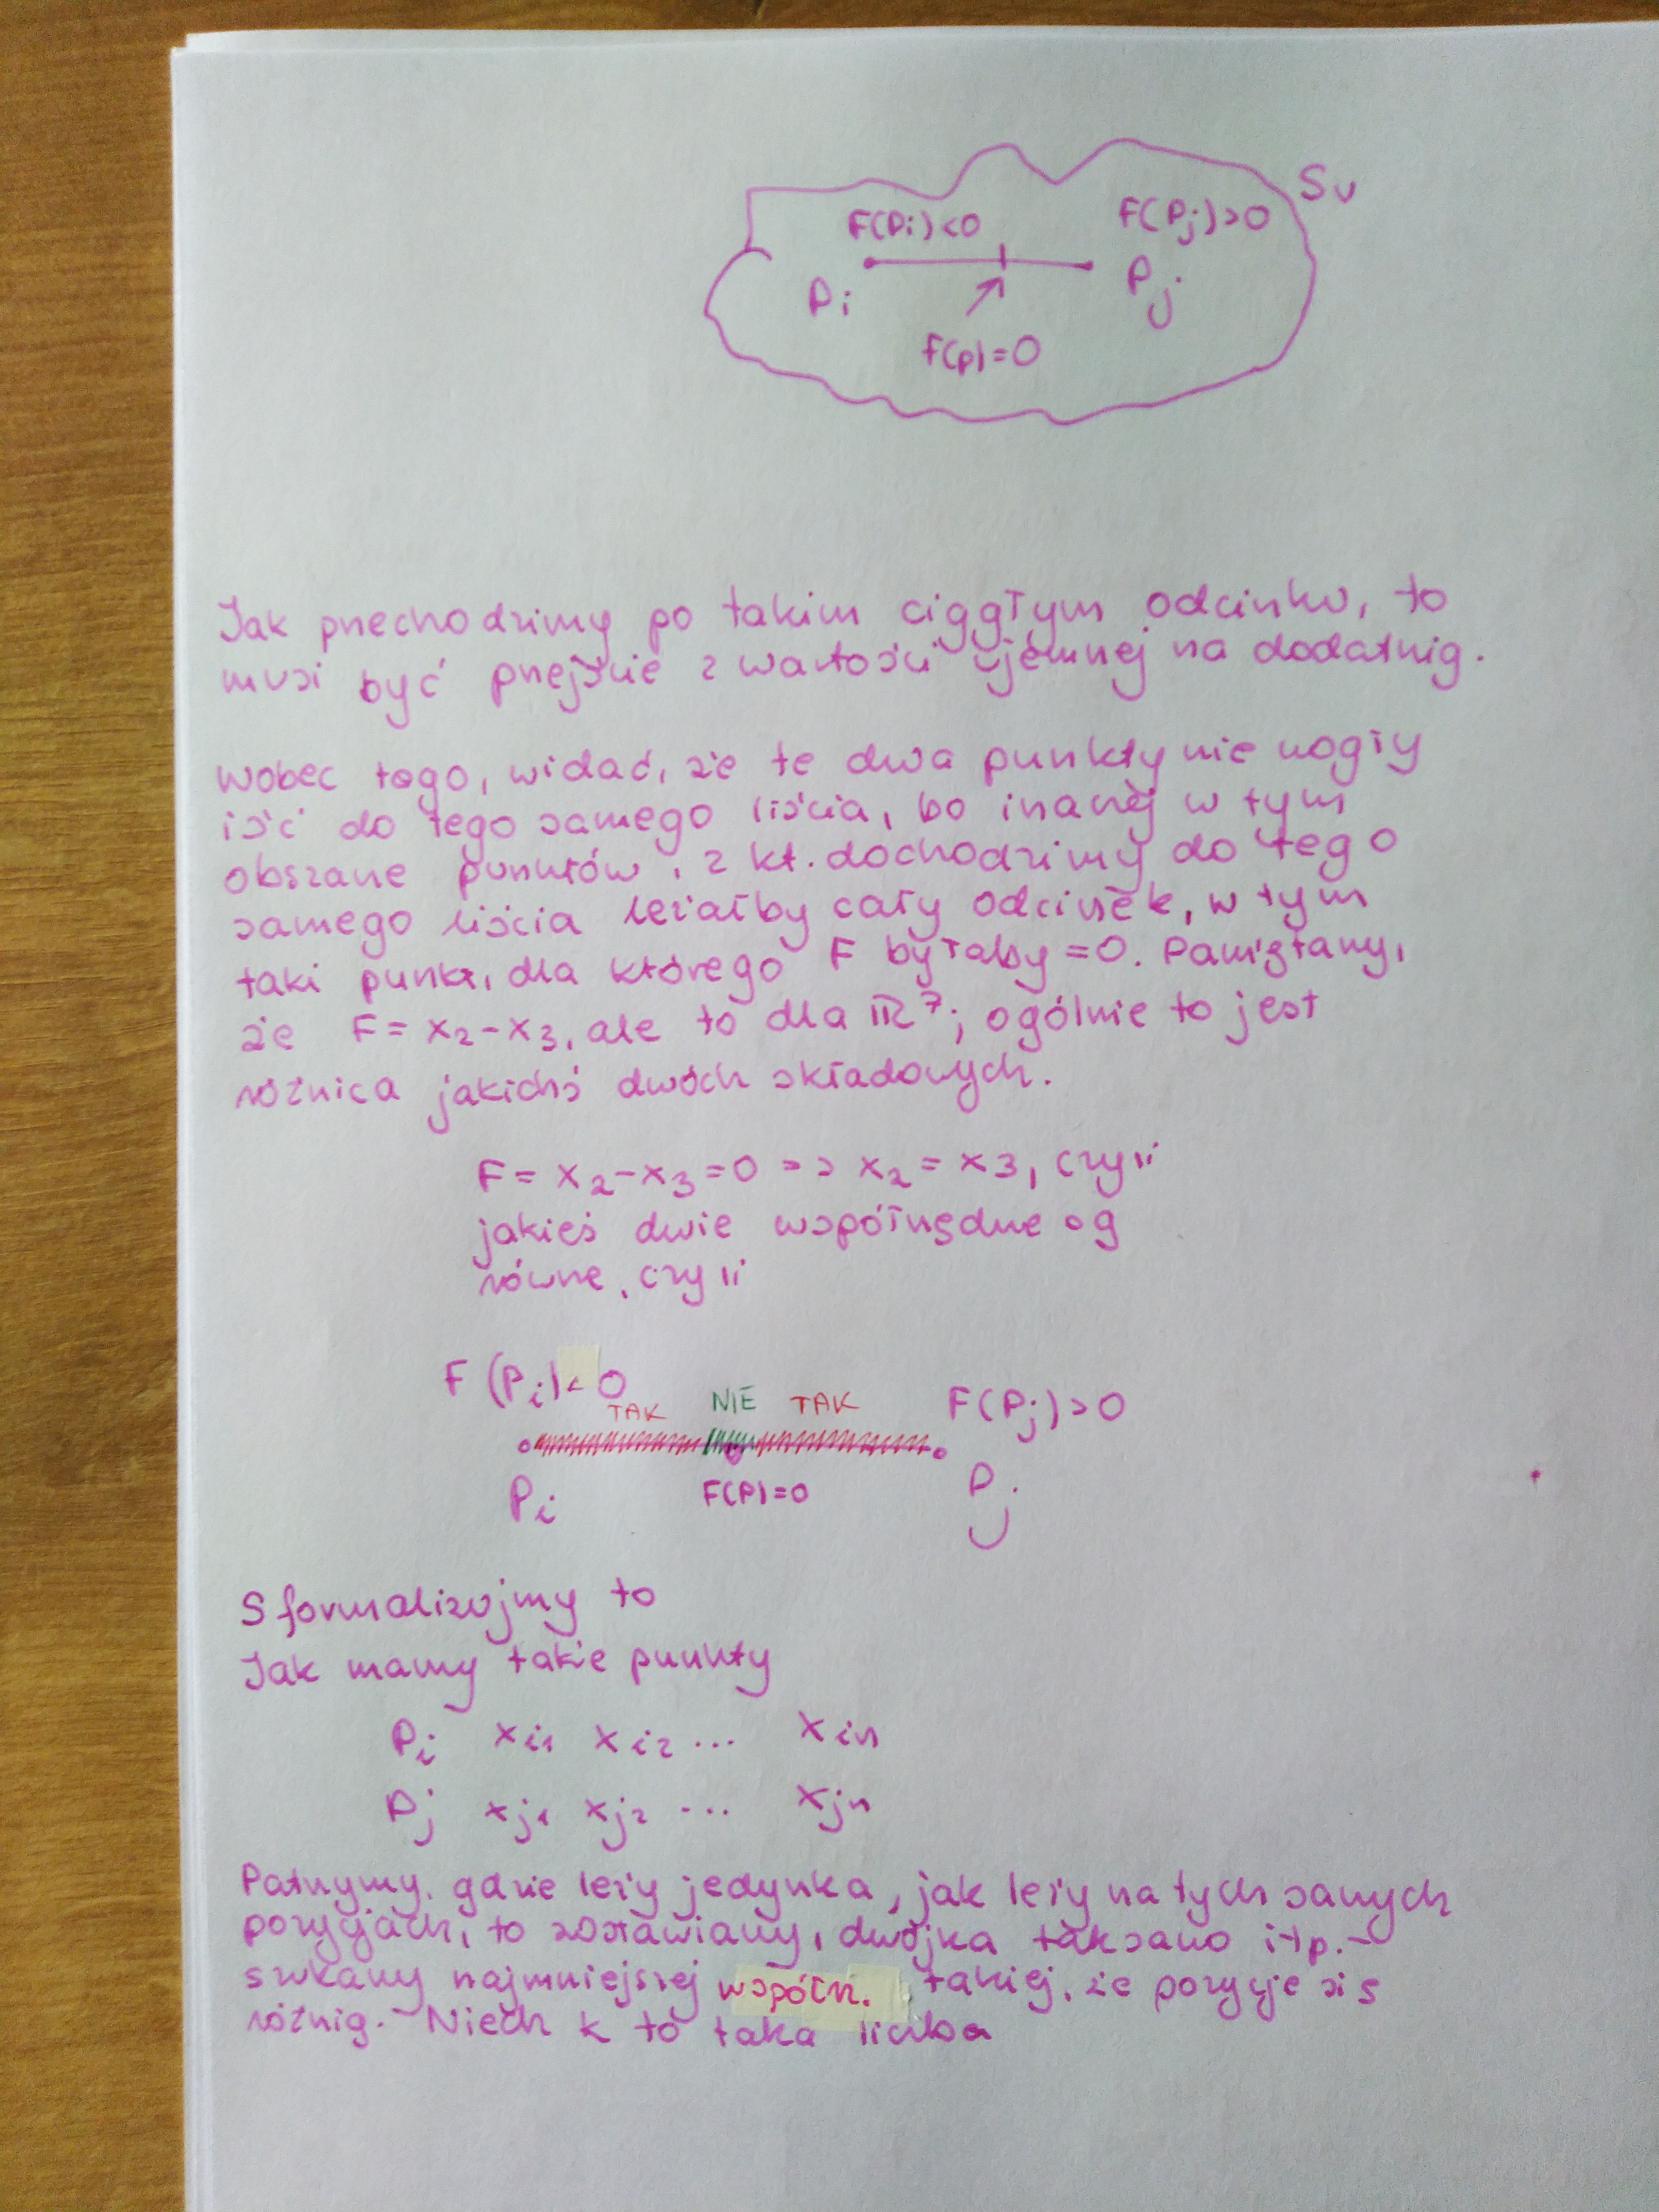 Sv
F(Pi)<0 F(Pj)>0
Pi Pj
F(p)=0
Jak przechodzimy po takim ciągłym odcinku, to
musi być przejście z wartości ujemnej na dodatnią.
Wobec tego, widać, że te dwa punkty nie mogły
iść do tego samego liścia, bo inaczej w tym
obszarze punktów, z kt. dochodzimy do tego
samego liścia leżałby cały odcinek, w tym
taki punkt, dla którego F byłaby =0. Pamiętamy,
że F = x₂-x₃, ale to dla ℝ⁷; ogólnie to jest
różnica jakichś dwóch składowych.
F = x₂-x₃=0 => x₂ = x₃, czyli
jakieś dwie współrzędne są
równe, czyli
F(Pi)<0 TAK NIE TAK F(Pj)>0
Pi F(P)=0 Pj
Sformalizujmy to
Jak mamy takie punkty
Pi xi1 xi2 ... xin
Pj xj1 xj2 ... xjn
Patrzymy, gdzie leży jedynka, jak leży na tych samych
pozycjach, to zostawiamy, dwójka tak samo itp.-
szukamy najmniejszej współrz. takiej, że pozycje się
różnią. Niech k to taka liczba